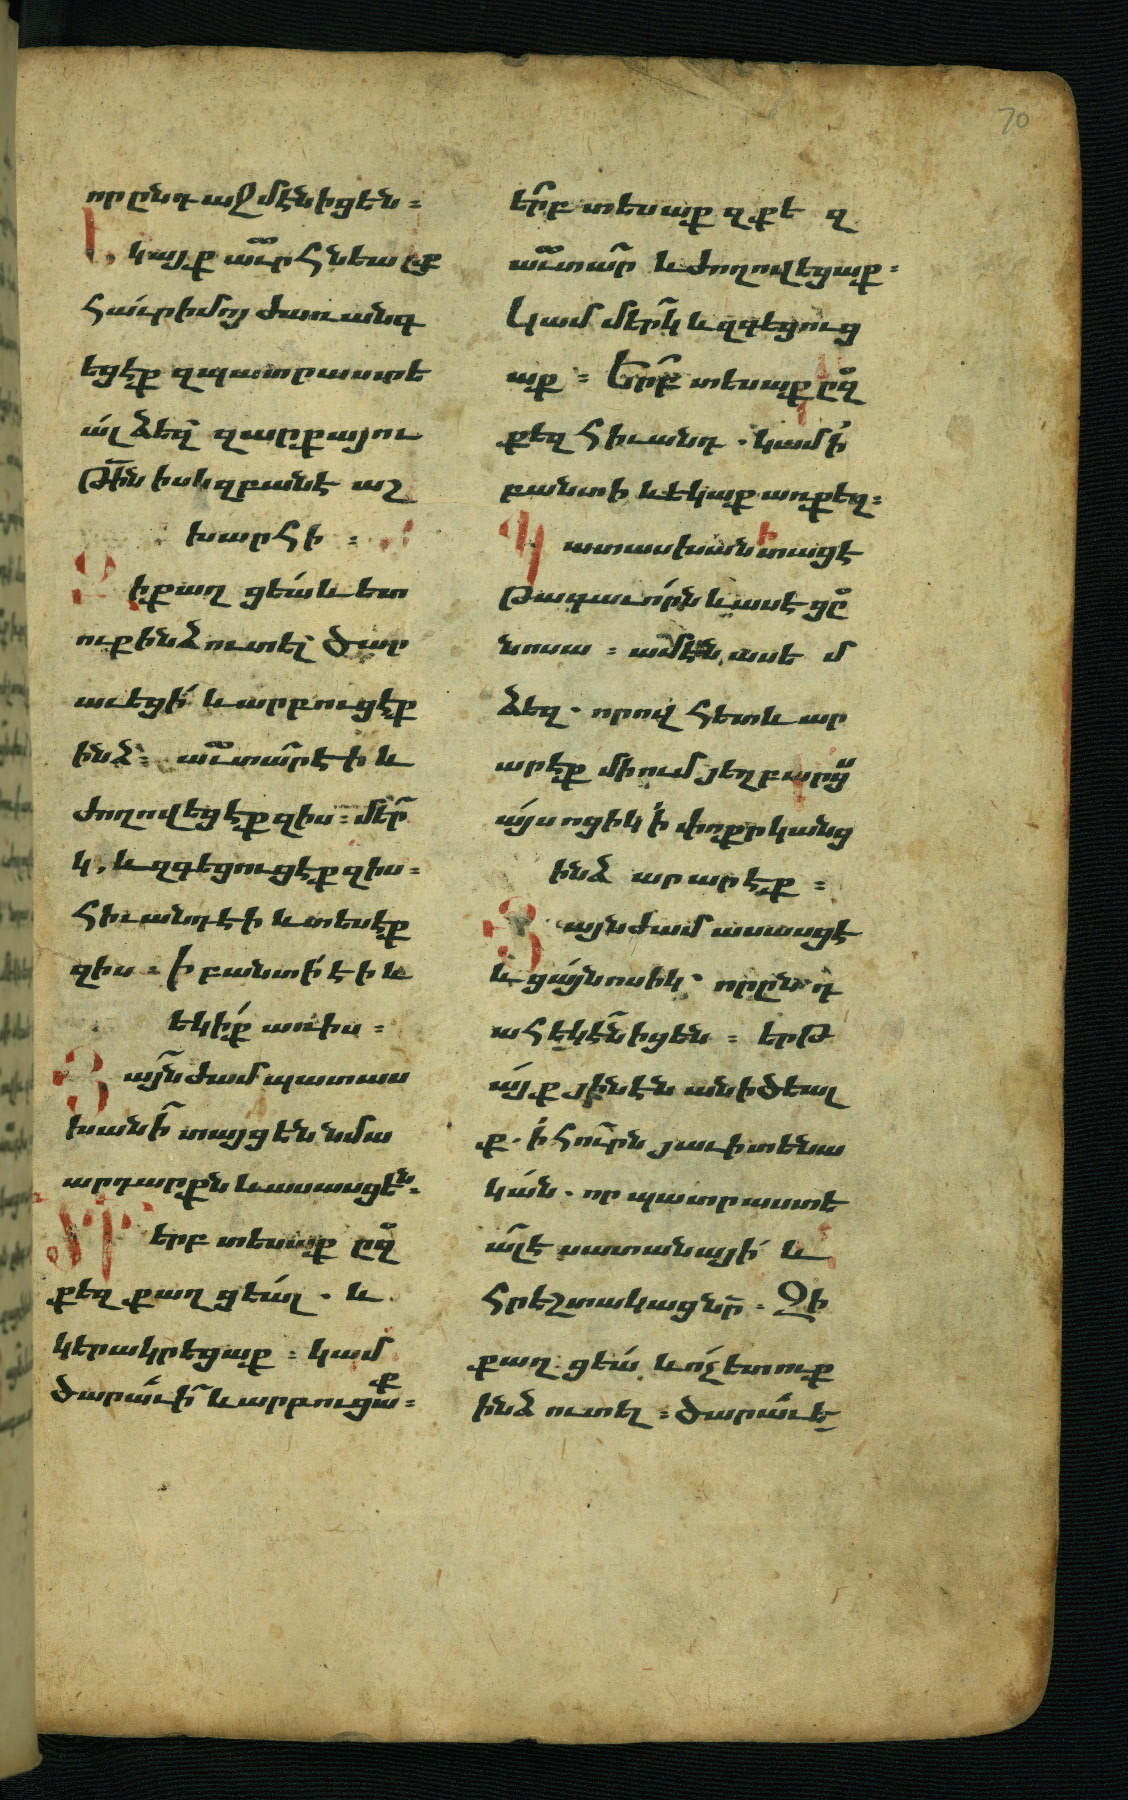 70
որ ընդ աջմէ նիցեն ։
Ե կայք աւրՀնեալք
Հաւր իմոյ ժառանգ
եցէք զպատրաստե
ալ ձեզ զարքայու
Թինն իսկզբանէ աշ
խարՀի ։
Զ իքաղցեա և ետ
ուք ինձ ուտել ծար
աւեցի և արբուցէք
ինձ ։ աւտար էի և
ժողովեցէք զիս ։ մեր
կ, և զգեցուցէք զիս ։
Հիւանդ էի և տեսէք
զիս ։ Ի բանտի էի և
եկիք առիս ։
Յ այնժամ պատաս
խանի տայցեն նմա
արդարքն և ասասցեն ։
ՏՐ երբ տեսաք ըզ
քեզ քաղցեալ . և
կերակրեցաք ։ կամ
ծարաւի և արբուցաք ։
երբ տեսաք զքե զ
աւտար և ժողովեցաք ։
Կամ մերկ և զգեցուց
աք ։ Երբ տեսաք ըզ
քեզ Հիւանդ . կամ ի
բանտի և եկաք առքեզ ։
Պ ատասխանի տացէ
Թագաւորն և ասէ ցը
նոսա ։ ամէն ասե մ
ձեզ . որովՀետև ար
արէք միում յեղբարց
այսոցիկ ի փոքրկանց
ինձ արարէք ։
Յ այնժամ ասասցէ
և ցայնոսիկ . որ ընդ
աՀեկէ նիցեն ։ երԹ
այք յինէն անիծեալ
ք . ի Հուրն յաւիտենա
կան . որ պատրաստե
ալ է սատանայի և
Հրեշտակաց նր . Զի
քաղցեա և ոչ ետուք
ինձ ուտել ։ ծարաւե